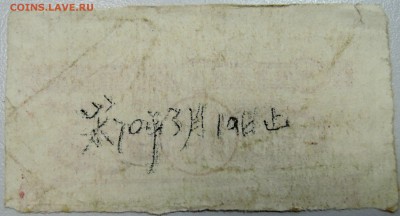 COINS.LAVE.RU
70年3月19日止